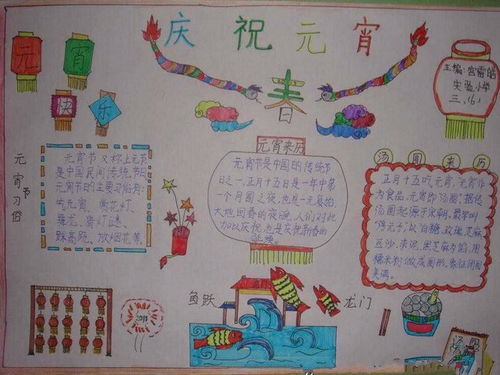 庆祝元宵
春
元
宵
快
乐
主编:宫雷皓
实验小学
三、(6)
元宵节习俗
元宵节又称上元节
是中国民间传统节日
元宵节的主要习俗有:
吃元宵、赏花灯、
舞龙、猜灯谜、
踩高跷、放烟花等。
元宵来历
元宵节是中国的传统节
日之一,正月十五日是一年中第
一个月圆之夜,也是一元复始
大地回春的夜晚,人们对此
加以庆祝,也是庆贺新春的
延续。
汤圆来历
正月十五吃元宵,元宵作
为食品,
元宵即"汤圆"
以白糖、玫瑰、芝麻
豆沙、
糯米粉
美满。
鱼跃
龙门
汤圆